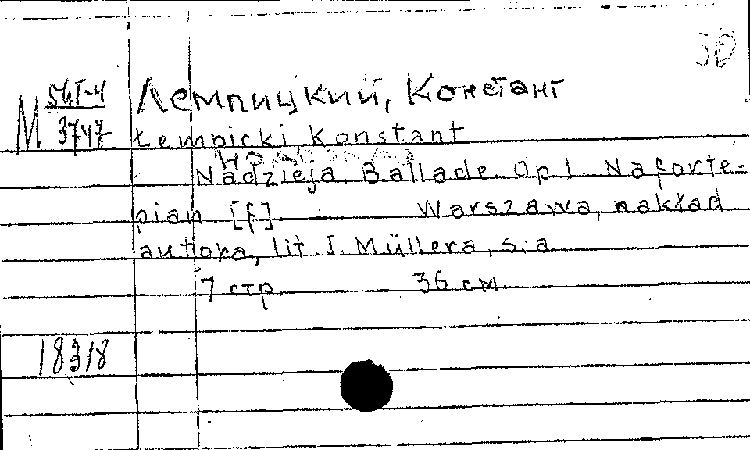 М 56Г-4
3747
Лемпицкий, Констант
Łempicki Konstant
Nadzieja. Ballade. Op 1. Na forte-
pian [f] Warszawa, nakład
autora, lit. J. Müllera, s. a.
7 стр. 36 см.
18318